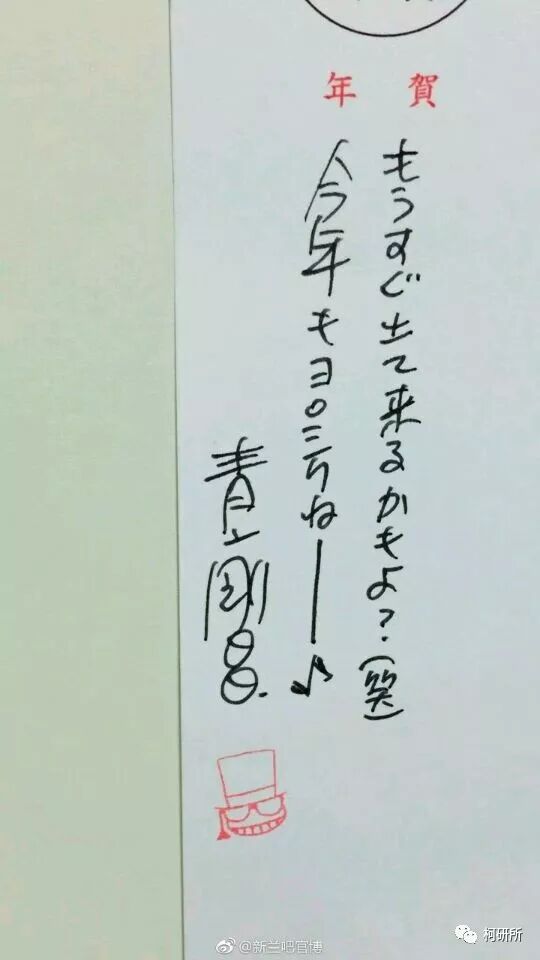 年賀
もうすぐ出て来るかもよ?(笑)
今年もヨロシクねー♪
青山剛昌
@新兰吧官博
柯研所